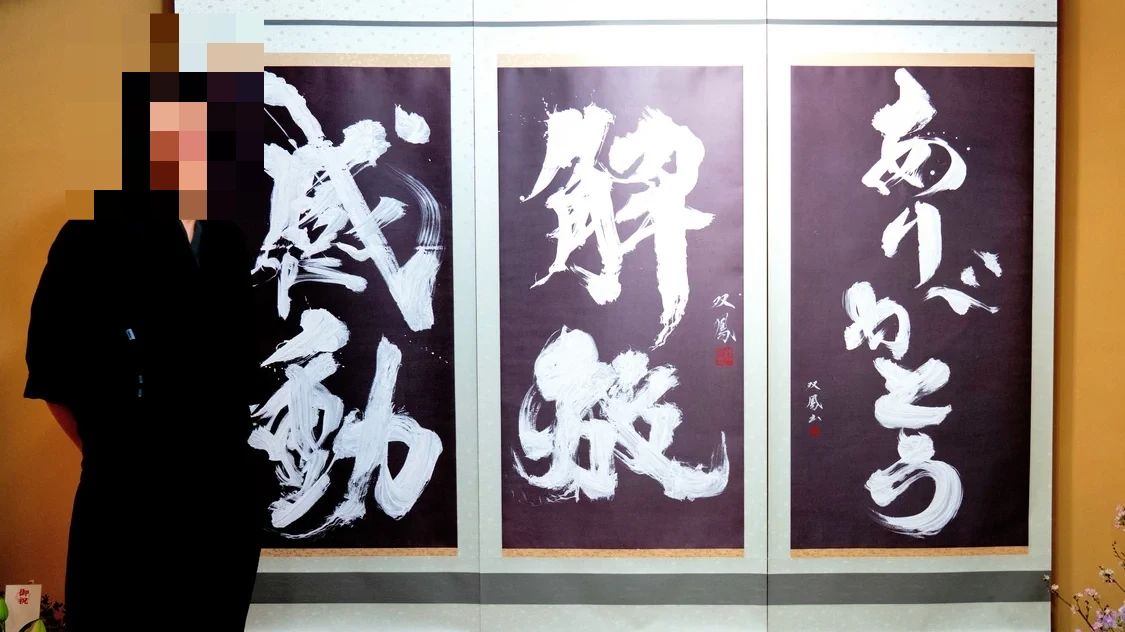 ありがとう
双鳳書
解放
双鳳
感動
御祝